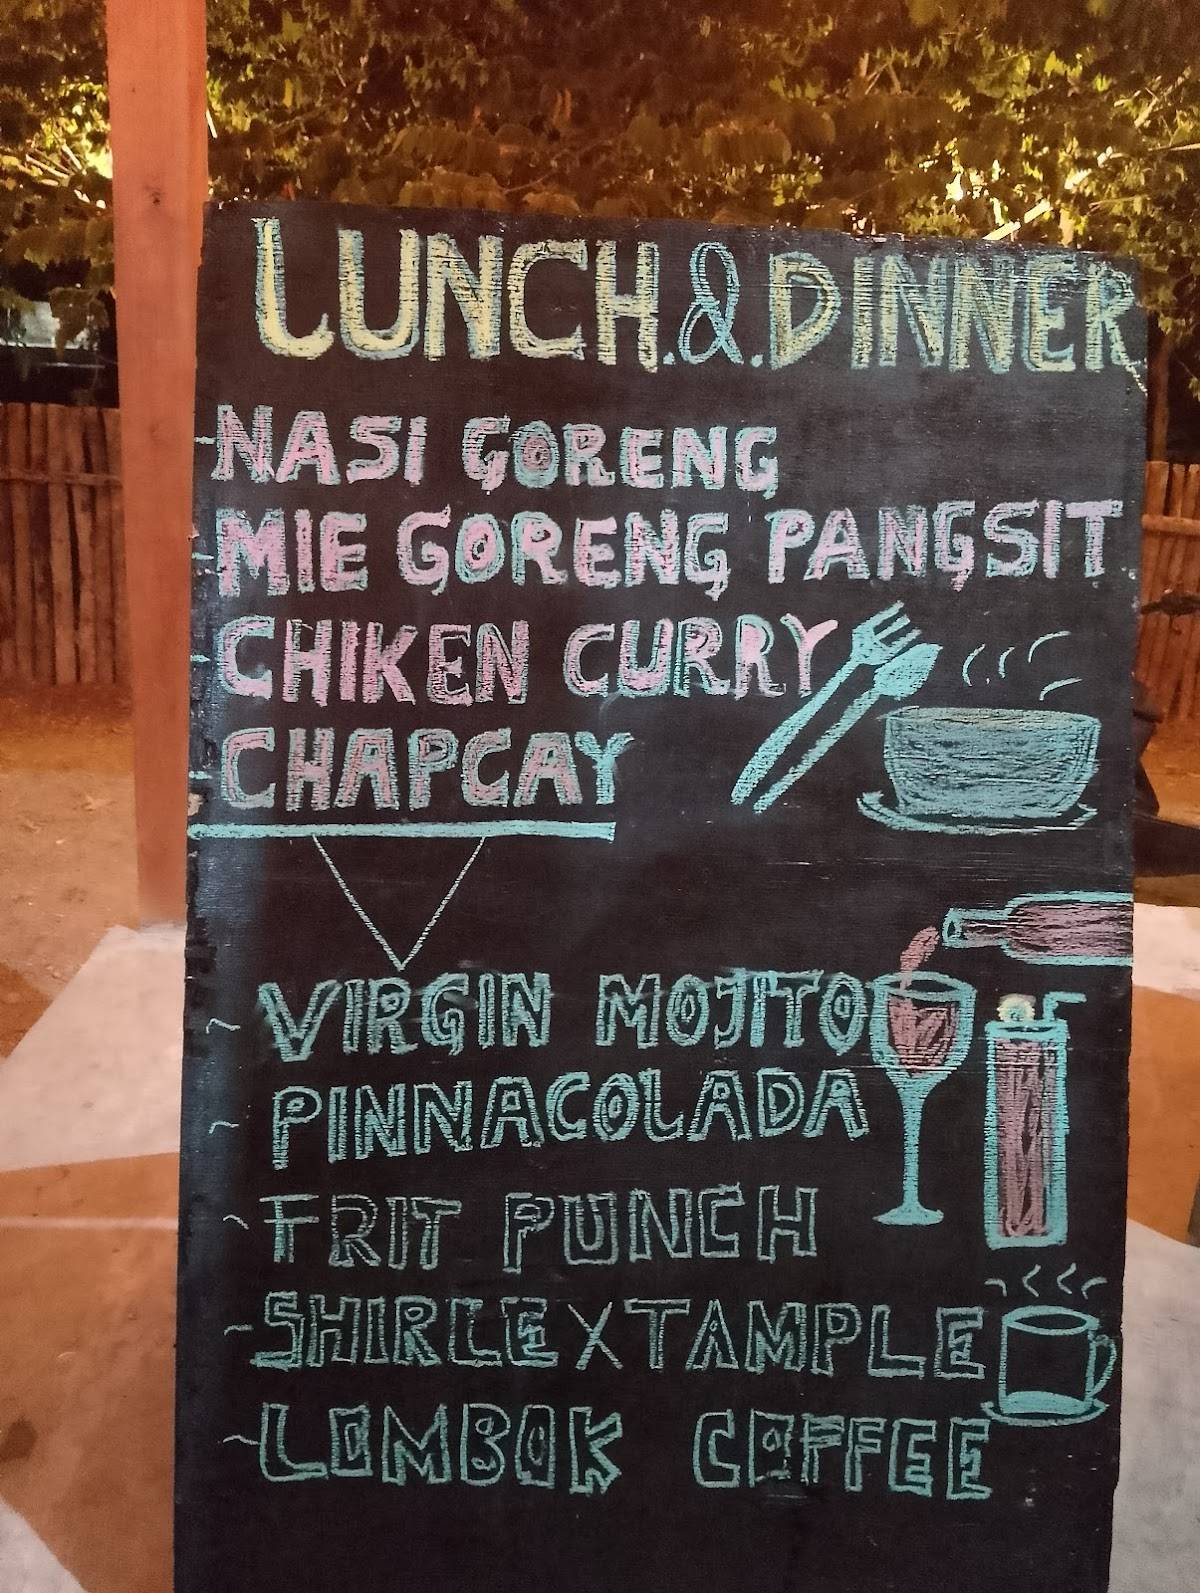 LUNCH.&.DINNER
- NASI GORENG
- MIE GORENG PANGSIT
- CHIKEN CURRY
- CHAPCAY
~ VIRGIN MOJITO
~ PINNACOLADA
~ FRIT PUNCH
~ SHIRLEX TAMPLE
~ LOMBOK COFFEE